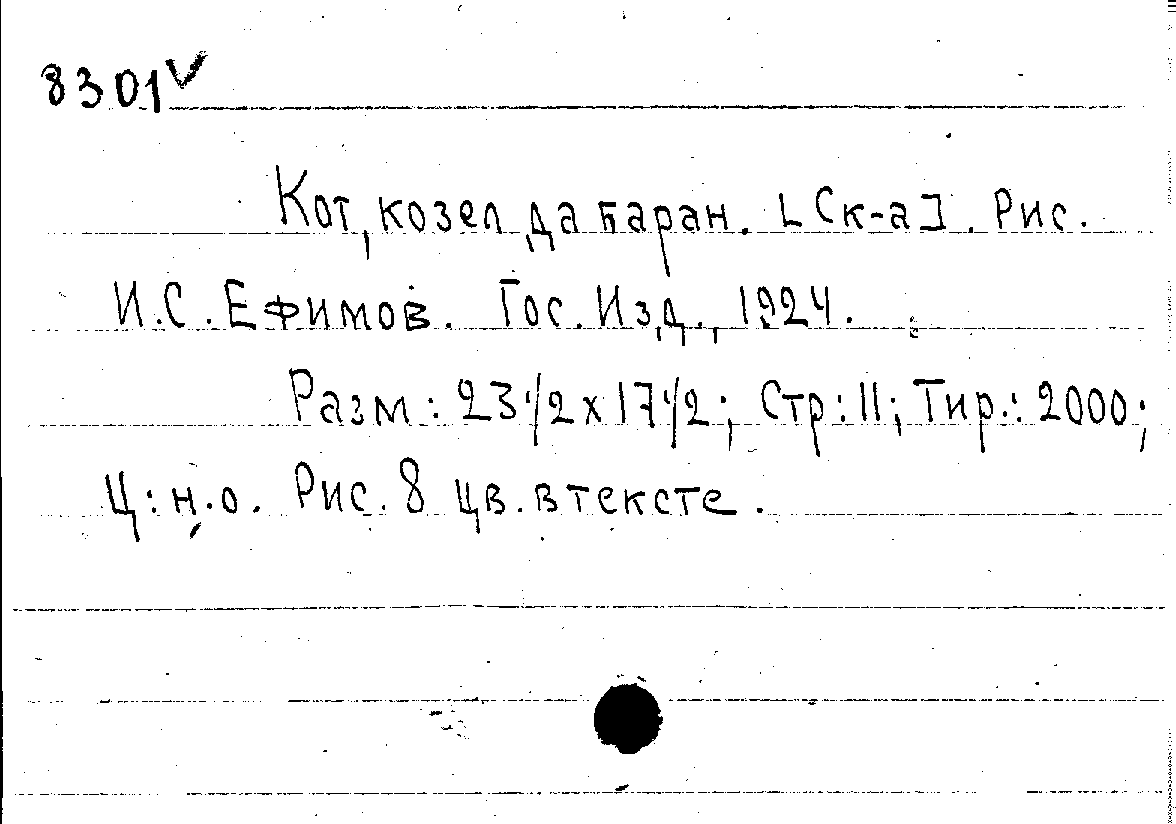 8301 ✓
Кот, козел да баран. [Ск-а]. Рис.
И.С. Ефимов. Гос. Изд., 1924.
Разм: 23 1/2 x 17 1/2; Стр: 11; Тир.: 2000;
Ц: н.о. Рис. 8 цв. в тексте.